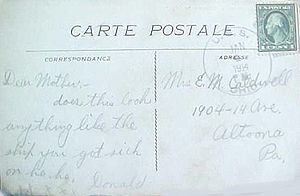 CARTE POSTALE
CORRESPONDANCE
ADRESSE
Dear Mother,-
does this look
anything like the
ship you got sick
on ha ha.
Donald
Mrs E. M. Caldwell
1904-14 Ave.
Altoona
Pa.
U. S.
JAN